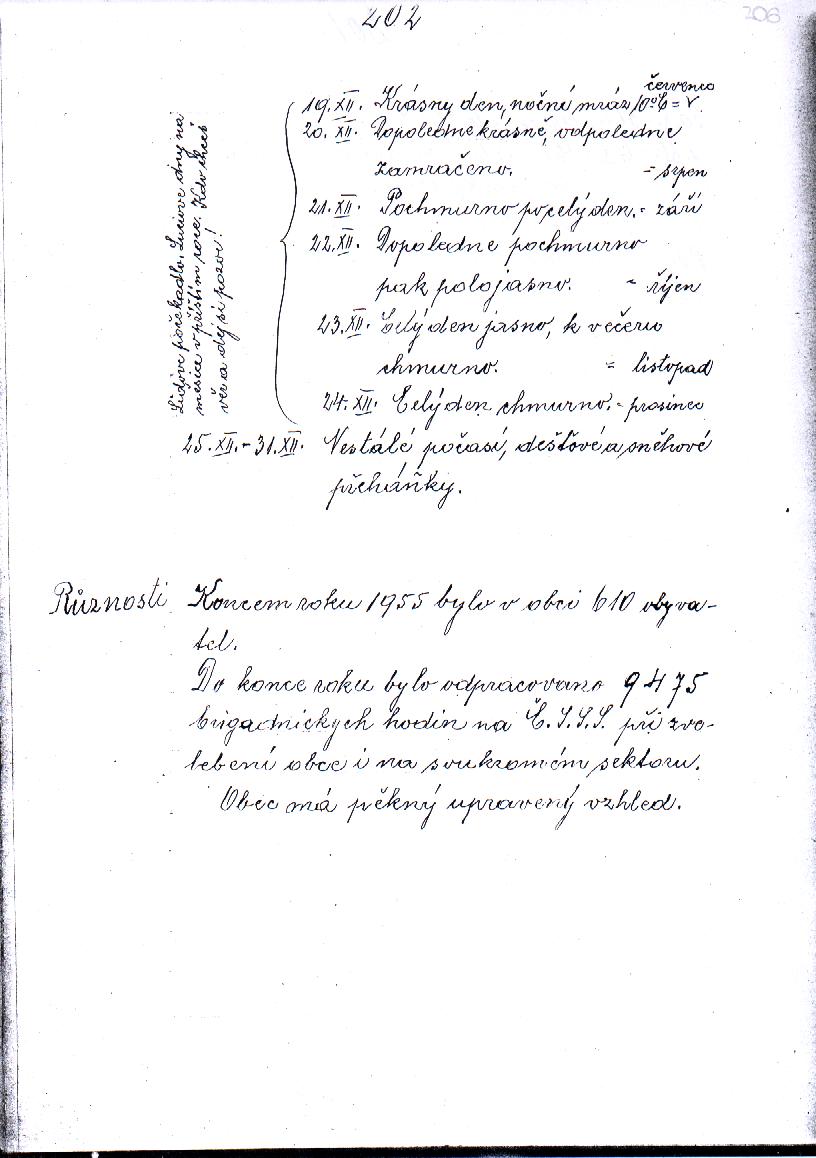 202
206
července
19. XII. Krásný den, noční mráz 10°C = v
20. XII. Dopoledne krásně, odpoledne
zamračeno. = srpen
21. XII. Pochmurno po celý den. = září
22. XII. Dopoledne pochmurno
pak polojasno. = říjen
23. XII. Celý den jasno, k večeru
chmurno. = listopad
24. XII. Celý den chmurno. = prosinec
25. XII. - 31. XII. Nestálé počasí, dešťové a sněhové
přeháňky.
Lidové pořekadlo. Luciové dny na
měsíce v příštím roce. Kdo chceš
věř a dej si pozor!
Různosti Koncem roku 1955 bylo v obci 610 obyva-
tel.
Do konce roku bylo odpracováno 9475
brigadnických hodin na Č.S.S.S. při zve-
lebení obce i na soukromém sektoru.
Obec má pěkný upravený vzhled.